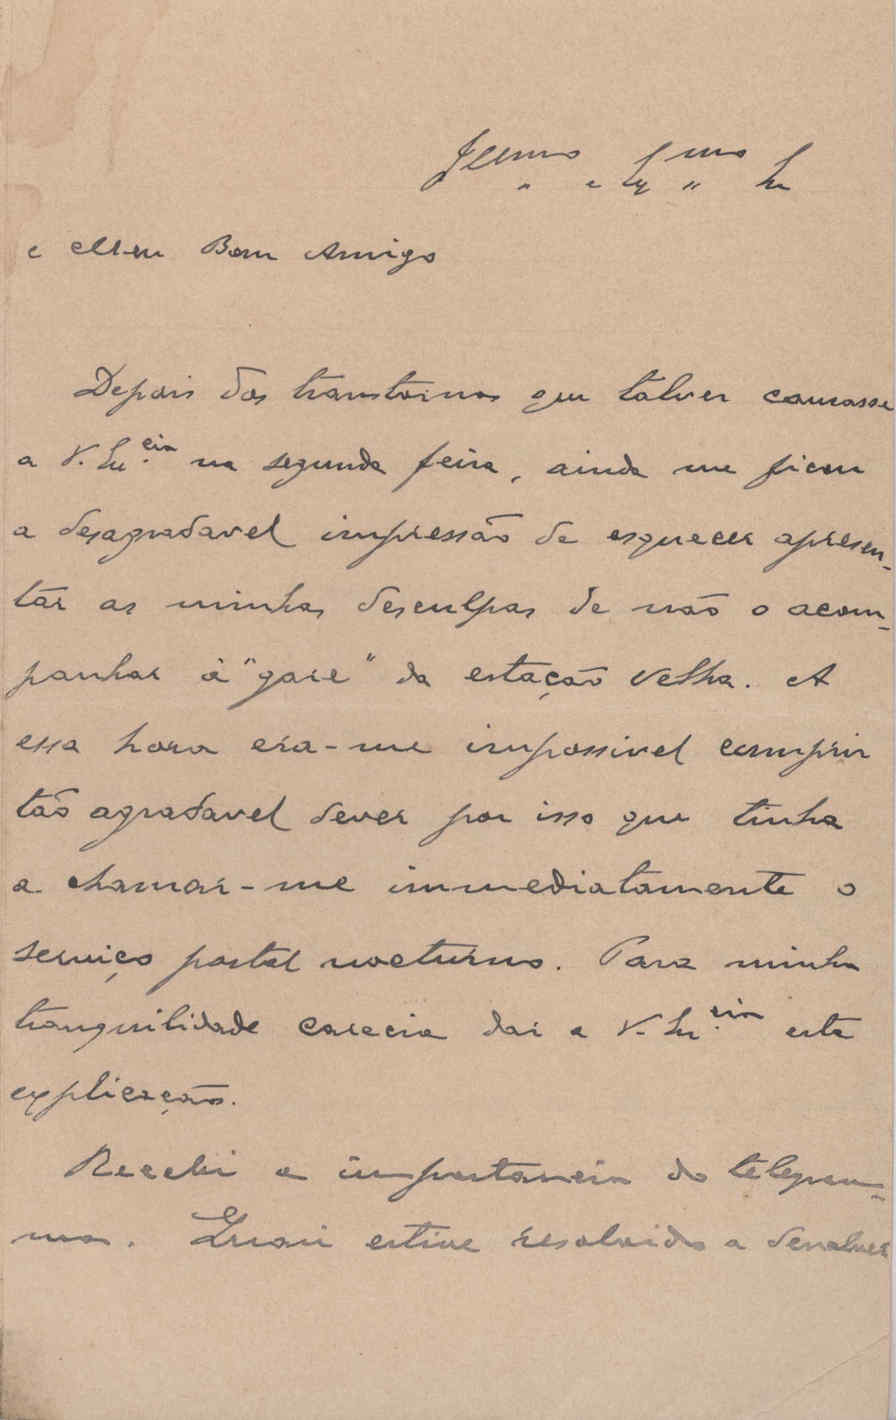 Illmo Exmo Sr
e Meu Bom Amigo
Depois dos transtornos que talvez causasse
a V. Ex.cia na segunda feira, ainda me ficou
a desagradavel impressão de esquecer apresen-
tar as minhas desculpas de não o acom-
panhar á "gare" da estação velha. A
essa hora era-me impossivel cumprir
tão agradavel dever por isso que tinha
a chamar-me immediatamente o
serviço postal nocturno. Para minha
tranquilidade carecia dar a V. Ex.cia esta
explicação.
Recebi a importancia do telegram-
ma. Quasi estive resolvido a devolver